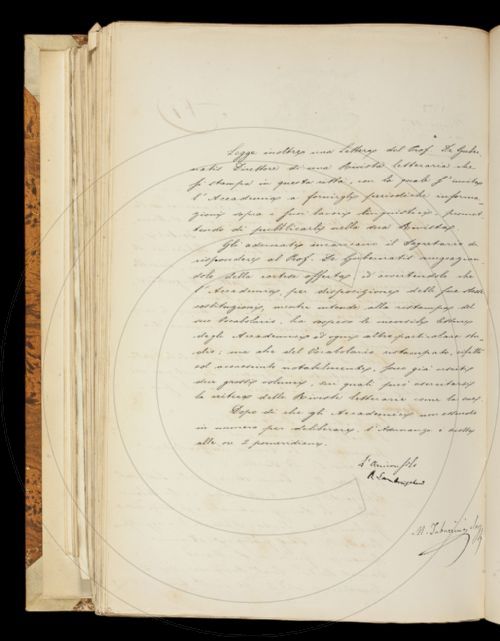 Legge inoltre una lettera del Prof. De Guber-
natis Direttore di una Rivista letteraria che
si stampa in questa città, con la quale s'invita
l'Accademia a fornirgli periodiche informa-
zioni sopra i suoi lavori linguistici, promet-
tendo di pubblicarle nella sua Rivista.
Gli adunati incaricano il Segretario di
rispondere al Prof. De Gubernatis ringrazian-
dolo della cortese offerta, ed avvertendolo che
l'Accademia, per disposizione delle sue
costituzioni, mentre intende alla ristampa del
suo Vocabolario, ha sospeso le
degli Accademici ed ogni altro particolare stu-
dio; ma che del Vocabolario ristampato, rifatto
ed accresciuto notabilmente, sono già usciti
due grossi volumi, sui quali può esercitarsi
la critica delle Riviste letterarie come la sua.
Dopo di che gli Accademici non essendo
in numero per deliberare, l'Adunanza è sciolta
alle ore 2 pomeridiane.